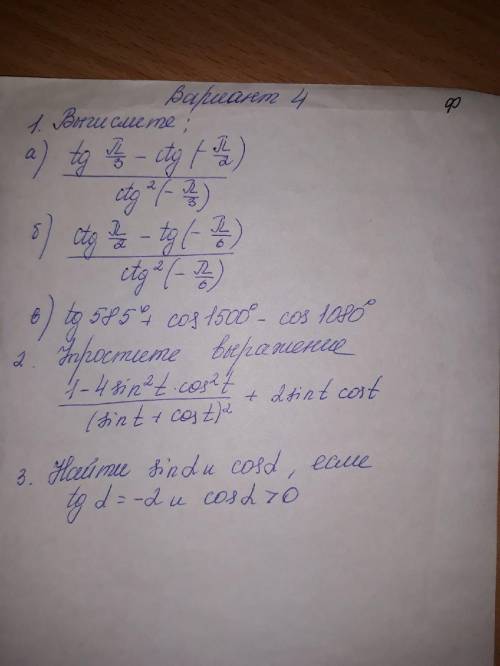 Вариант 4
ф
1. Вычислите:
а) (tg π/3 - ctg(-π/2)) / ctg²(-π/3)
б) (ctg π/2 - tg(-π/6)) / ctg²(-π/6)
в) tg 585° + cos 1500° - cos 1080°
2. Упростите выражение
(1-4sin²t·cos²t) / (sint + cost)² + 2sint cost
3. Найти sinα и cosα, если
tg α = -2 и cosα > 0